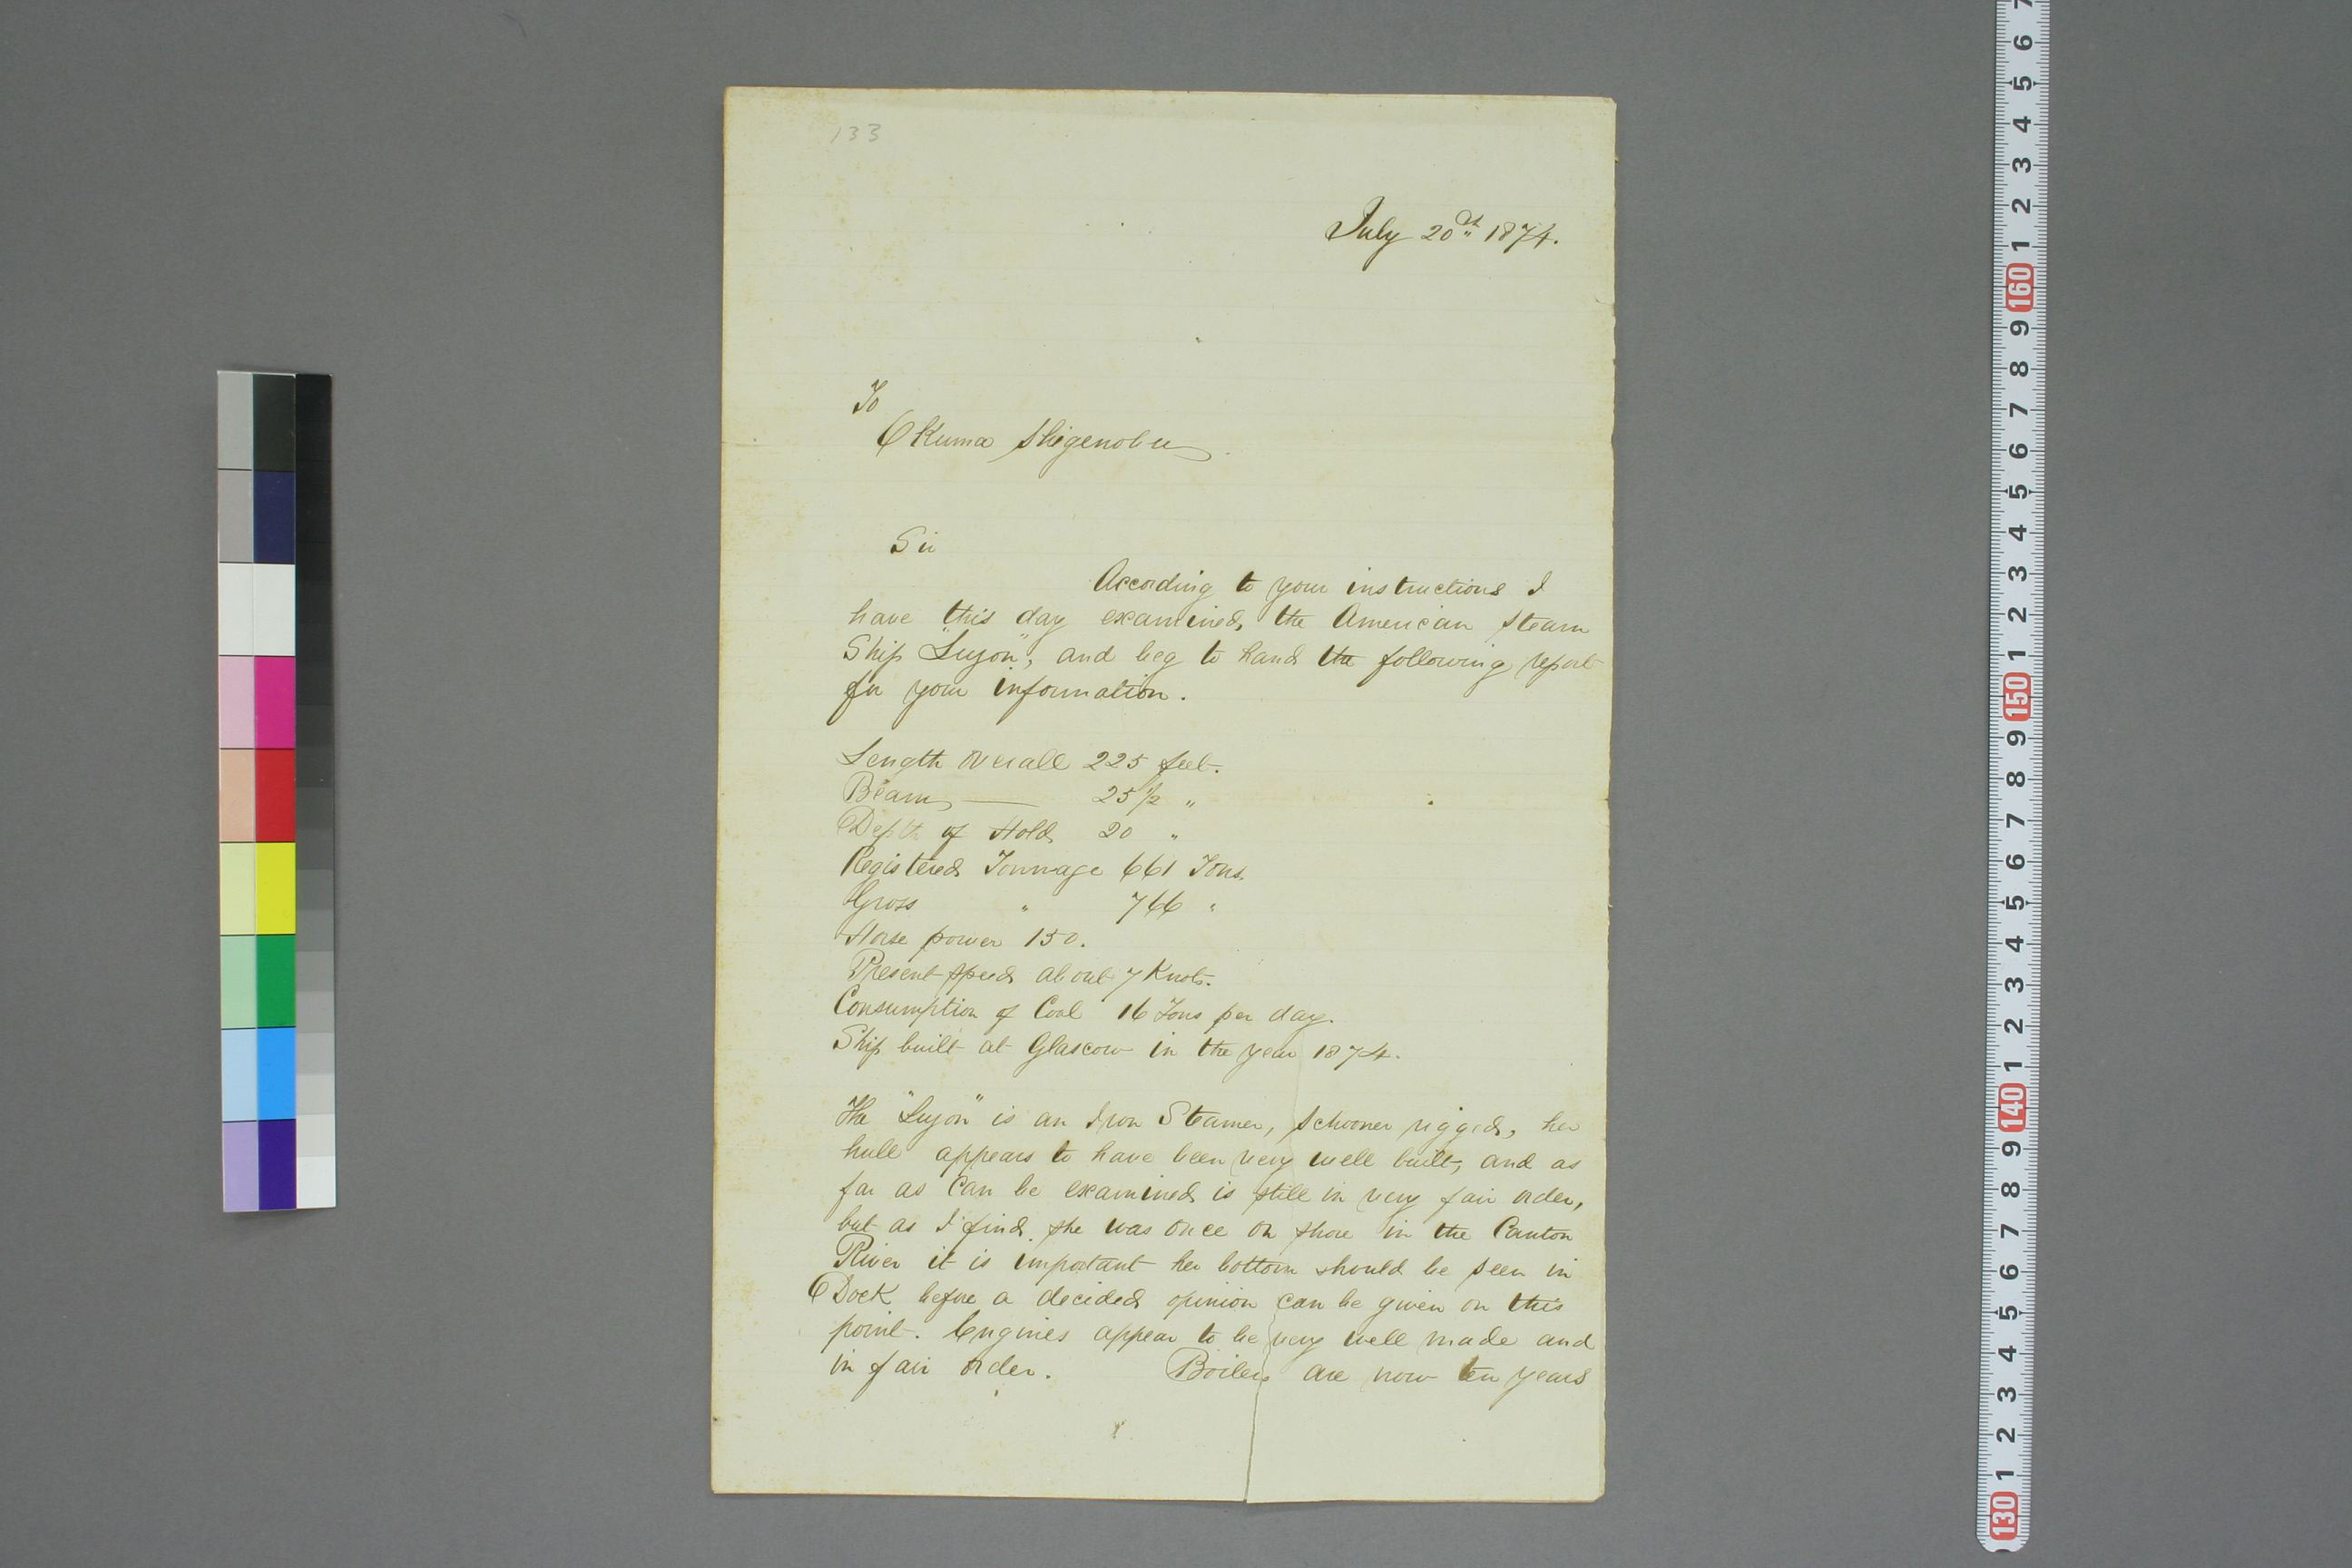 133
July 20th 1874.
To
Okuma Shigenobu
Sir
According to your instructions I
have this day examined, the American Steam
Ship "Luzon", and beg to hand the following report
for your information.
Length overall 225 feet.
Beam — 25 1/2 "
Depth of Hold 20 "
Registered Tonnage 661 Tons
Gross " 766 "
Horse power 150.
Present speed about 7 Knots.
Consumption of Coal 16 Tons per day.
Ship built at Glascow in the year 1874.
The "Luzon" is an Iron Steamer, schooner rigged, her
hull appears to have been very well built, and as
far as can be examined is still in very fair order,
but as I find she was once on shore in the Canton
River it is important her bottom should be seen in
Dock before a decided opinion can be given on this
point. Engines appear to be very well made and
in fair order. Boilers are now ten years
7
6
5
4
3
2
1
160
9
8
7
6
5
4
3
2
1
150
9
8
7
6
5
4
3
2
1
140
9
8
7
6
5
4
3
2
1
130